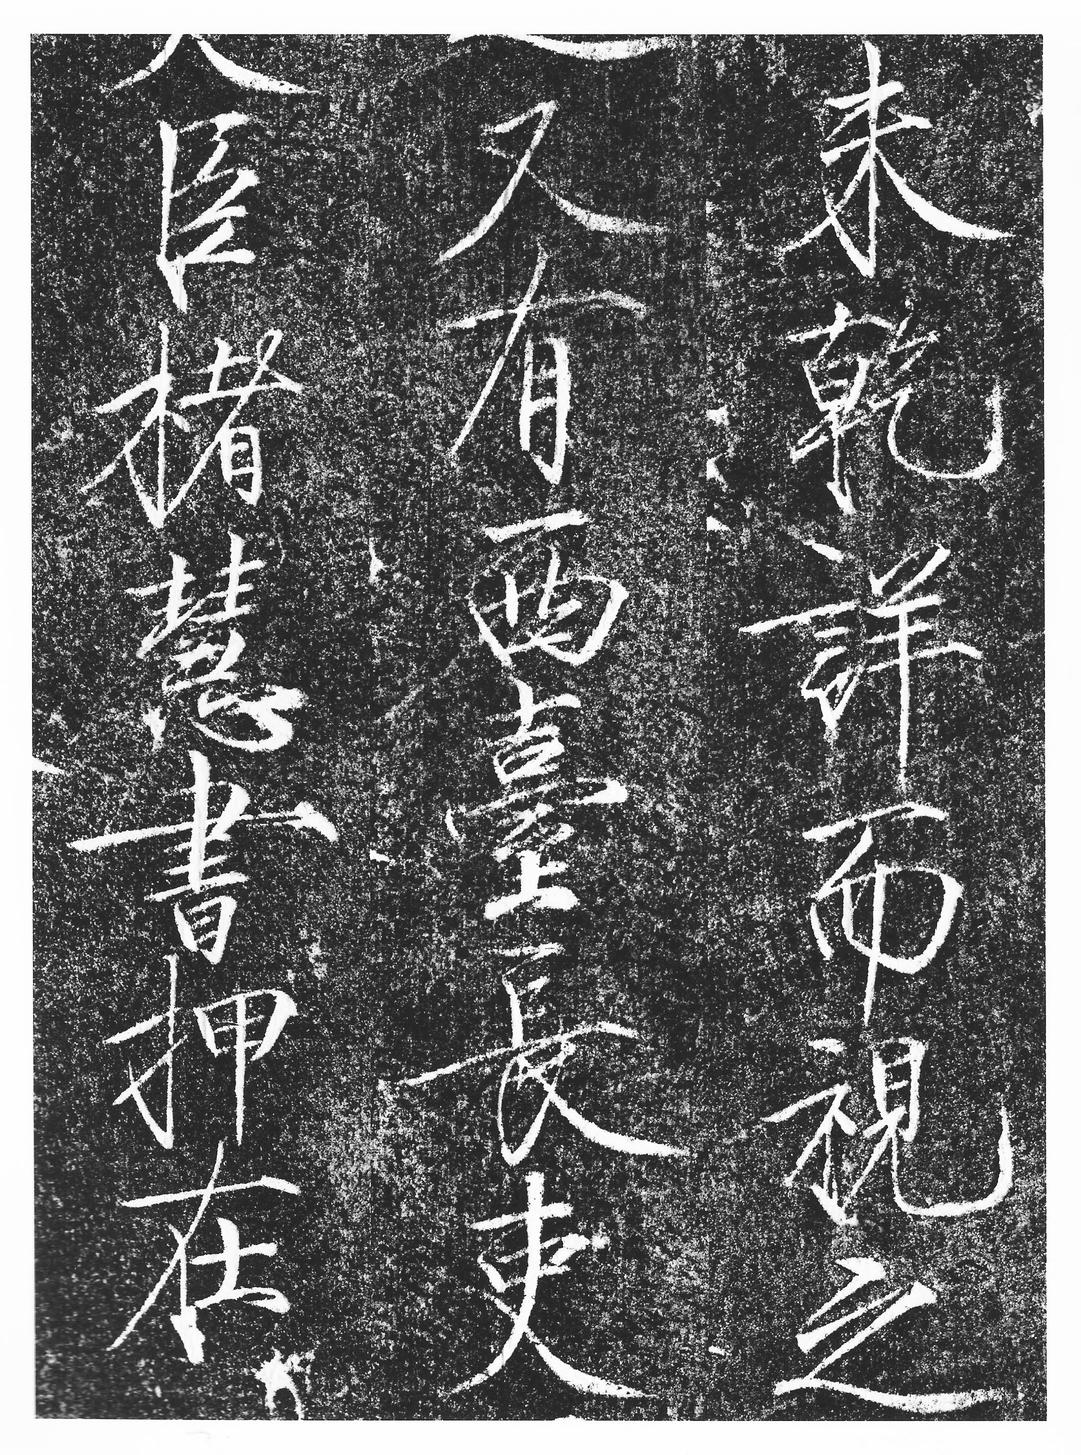 未乾詳而視之
又有西臺長吏
臣楮慧書押在